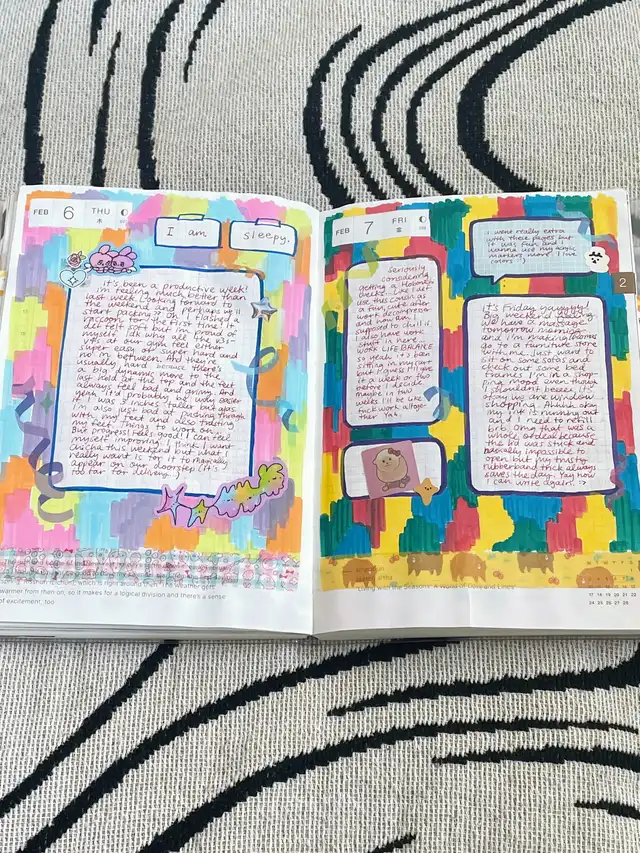 FEB 6 THU
木
I am
sleepy.
It's been a productive week!
I'm feeling much better than
last week. Looking forward to
the weekend and perhaps I'll
start packing so I tasked a
raccoon for the first time! It
def felt soft but I'm proud of
myself. IDK why all the v3-
v4s at our gym feel either
super easy or super hard and
no in between. And they're
usually hard because there's
a big dynamic move to the
last hold at the top and the feet
always feel slippy and grimy. And
yeah it'd probably be way easier
if I was 3 inches taller but alas.
I'm also just bad at pushing through
with my feet and also trusting
my feet. Things to work on.
But progress feels good! I can feel
myself improving. I think I want
chilis this weekend but what I
really want is for it to magically
appear on our doorstep (it's
too far for delivery.)
warmer from then on, so it makes for a logical division and there's a sense
of excitement, too
FEB 7 FRI
金
I went really extra
with these pages but
it was fun and I
wanna use my acrylic
markers more! I love
colors :)
2
Seriously
considering
getting a Hobonichi
Weeks. Like I can
use this cousin as
a fun, cute after
work decompressor
and how am I
supposed to chill if
I also have work
stuff in here.
WORK LIFE BALANCE
so yeah. It's been
sitting in my cart
but I guess I'll give
it a week or two
before I decide.
Maybe in two
weeks I'll be like
fuck work alltoge-
ther
It's Friday yayyyyy!
Big weekend ahead,
we have a massage
tomorrow morning
and I'm making Thomas
go to a furniture store
with me. Just want to
sit on some sofas and
check out some bed
frames. I'm in a shop-
ping mood even though
shouldn't beeee. It's
okay we are window
shopping. Ahhhh okay
my ink is running out
and I need to refill
brb. Omg that was a
whole ordeal because
the lid was stuck and
basically impossible to
open but my trusty
rubberband trick always
saves the day. Yay now
I can write again. :>
Living with the Seasons: A World of Dots and Lines
17 18 19 20 21 22
24 25 26 27 28